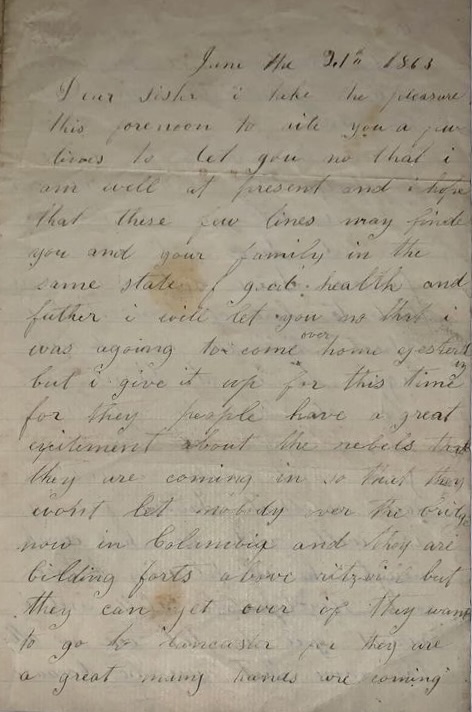 June the 21th 1863
Dear Sister i take the pleasure
this forenoon to rite you a few
lines to let you no that i
am well at present and i hope
that these few lines may finde
you and your family in the
same state of good health and
father i will let you no that i
was agoing to come over home
but i give it up for this time
for they people have a great
excitement about the rebels that
they are coming in so that they
wont let nobidy over the
now in Columbia and they are
bilding forts above but
they can get over if they want
to go to Lancaster for they are
a great many hands are coming